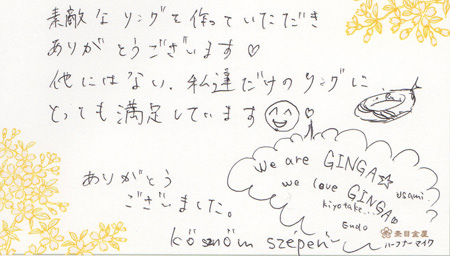 素敵なリングを作っていただき
ありがとうございます♡
他にはない、私達だけのリングに
とっても満足しています
ありがとう
ございました。
köszönöm szépen
We are GINGA☆
we love GINGA
usami
kiyotake...
Endo
杢目金屋
ハーフナーマイク